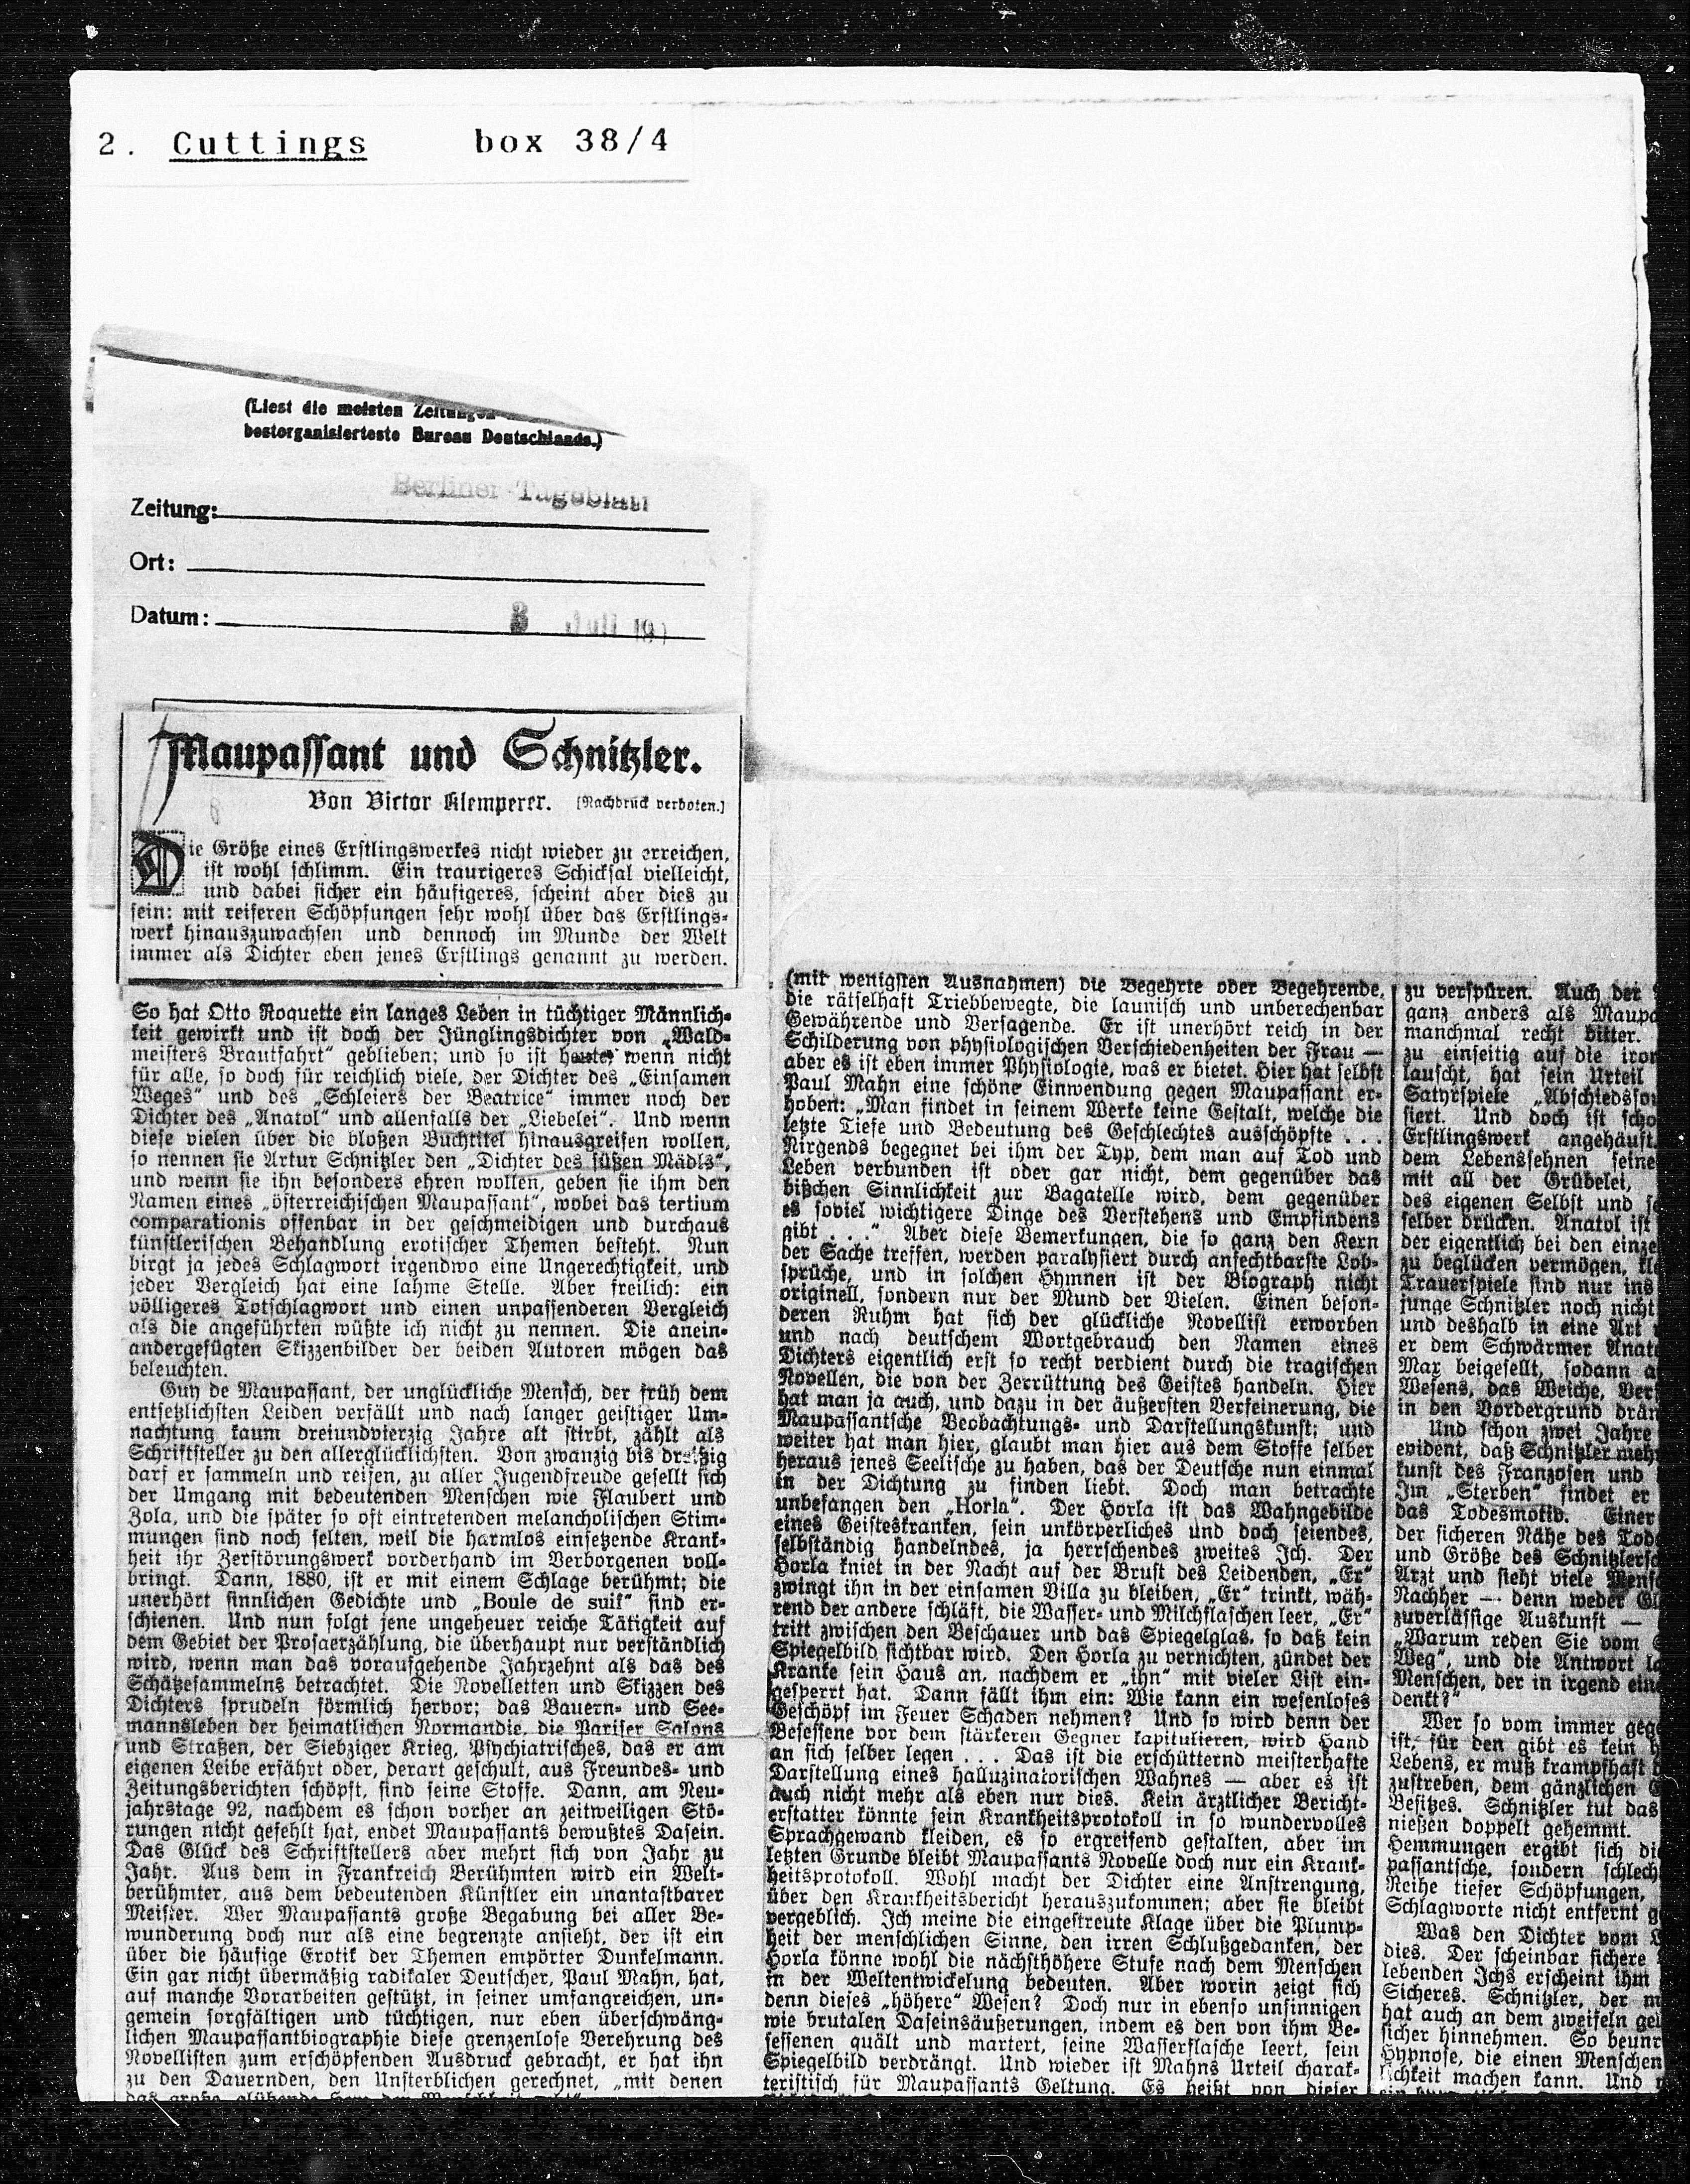 2. Cuttings box 38/4
(Liest die meisten Zeitungen
bestorganisierteste Bureau Deutschlands.)
Berliner Tageblatt
Zeitung:
Ort:
Datum:
3 Juli 19
Maupassant und Schnitzler.
Von Victor Klemperer. [Nachdruck verboten.]
Die Größe eines Erstlingswerkes nicht wieder zu erreichen,
ist wohl schlimm. Ein traurigeres Schicksal vielleicht,
und dabei sicher ein häufigeres, scheint aber dies zu
sein: mit reiferen Schöpfungen sehr wohl über das Erstlings-
werk hinauszuwachsen und dennoch im Munde der Welt
immer als Dichter eben jenes Erstlings genannt zu werden.
So hat Otto Roquette ein langes Leben in tüchtiger Männlich-
keit gewirkt und ist doch der Jünglingsdichter von „Wald-
meisters Brautfahrt“ geblieben; und so ist heute, wenn nicht
für alle, so doch für reichlich viele, der Dichter des „Einsamen
Weges“ und des „Schleiers der Beatrice“ immer noch der
Dichter des „Anatol“ und allenfalls der „Liebelei“. Und wenn
diese vielen über die bloßen Buchtitel hinausgreifen wollen,
so nennen sie Artur Schnitzler den „Dichter des süßen Mädls“,
und wenn sie ihn besonders ehren wollen, geben sie ihm den
Namen eines „österreichischen Maupassant“, wobei das tertium
comparationis offenbar in der geschmeidigen und durchaus
künstlerischen Behandlung erotischer Themen besteht. Nun
birgt ja jedes Schlagwort irgendwo eine Ungerechtigkeit, und
jeder Vergleich hat eine lahme Stelle. Aber freilich: ein
völligeres Totschlagwort und einen unpassenderen Vergleich
als die angeführten wüßte ich nicht zu nennen. Die anein-
andergefügten Skizzenbilder der beiden Autoren mögen das
beleuchten.
Guy de Maupassant, der unglückliche Mensch, der früh dem
entsetzlichsten Leiden verfällt und nach langer geistiger Um-
nachtung kaum dreiundvierzig Jahre alt stirbt, zählt als
Schriftsteller zu den allerglücklichsten. Von zwanzig bis dreißig
darf er sammeln und reisen, zu aller Jugendfreude gesellt sich
der Umgang mit bedeutenden Menschen wie Flaubert und
Zola, und die später so oft eintretenden melancholischen Stim-
mungen sind noch selten, weil die harmlos einsetzende Krank-
heit ihr Zerstörungswerk vorderhand im Verborgenen voll-
bringt. Dann, 1880, ist er mit einem Schlage berühmt; die
unerhört sinnlichen Gedichte und „Boule de suif“ sind er-
schienen. Und nun folgt jene ungeheuer reiche Tätigkeit auf
dem Gebiet der Prosaerzählung, die überhaupt nur verständlich
wird, wenn man das voraufgehende Jahrzehnt als das des
Schätzesammelns betrachtet. Die Novelletten und Skizzen des
Dichters sprudeln förmlich hervor; das Bauern- und See-
mannsleben der heimatlichen Normandie, die Pariser Salons
und Straßen, der Siebziger Krieg, Psychiatrisches, das er am
eigenen Leibe erfährt oder, derart geschult, aus Freundes- und
Zeitungsberichten schöpft, sind seine Stoffe. Dann, am Neu-
jahrstage 92, nachdem es schon vorher an zeitweiligen Stö-
rungen nicht gefehlt hat, endet Maupassants bewußtes Dasein.
Das Glück des Schriftstellers aber mehrt sich von Jahr zu
Jahr. Aus dem in Frankreich Berühmten wird ein Welt-
berühmter, aus dem bedeutenden Künstler ein unantastbarer
Meister. Wer Maupassants große Begabung bei aller Be-
wunderung doch nur als eine begrenzte ansieht, der ist ein
über die häufige Erotik der Themen empörter Dunkelmann.
Ein gar nicht übermäßig radikaler Deutscher, Paul Mahn, hat,
auf manche Vorarbeiten gestützt, in seiner umfangreichen, un-
gemein sorgfältigen und tüchtigen, nur eben überschwäng-
lichen Maupassantbiographie diese grenzenlose Verehrung des
Novellisten zum erschöpfenden Ausdruck gebracht, er hat ihn
zu den Dauernden, den Unsterblichen gerechnet, „mit denen
das große glühende Herz der Menschheit
(mit wenigsten Ausnahmen) die Begehrte oder Begehrende,
die rätselhaft Triebbewegte, die launisch und unberechenbar
Gewährende und Versagende. Er ist unerhört reich in der
Schilderung von physiologischen Verschiedenheiten der Frau —
aber es ist eben immer Physiologie, was er bietet. Hier hat selbst
Paul Mahn eine schöne Einwendung gegen Maupassant er-
hoben: „Man findet in seinem Werke keine Gestalt, welche die
letzte Tiefe und Bedeutung des Geschlechtes ausschöpfte . . .
Nirgends begegnet bei ihm der Typ, dem man auf Tod und
Leben verbunden ist oder gar nicht, dem gegenüber das
bißchen Sinnlichkeit zur Bagatelle wird, dem gegenüber
es soviel wichtigere Dinge des Verstehens und Empfindens
gibt . . .“ Aber diese Bemerkungen, die so ganz den Kern
der Sache treffen, werden paralysiert durch anfechtbarste Lob-
sprüche, und in solchen Hymnen ist der Biograph nicht
originell, sondern nur der Mund der Vielen. Einen beson-
deren Ruhm hat sich der glückliche Novellist erworben
und nach deutschem Wortgebrauch den Namen eines
Dichters eigentlich erst so recht verdient durch die tragischen
Novellen, die von der Zerrüttung des Geistes handeln. Hier
hat man ja auch, und dazu in der äußersten Verfeinerung, die
Maupassantsche Beobachtungs- und Darstellungskunst; und
weiter hat man hier, glaubt man hier aus dem Stoffe selber
heraus jenes Seelische zu haben, das der Deutsche nun einmal
in der Dichtung zu finden liebt. Doch man betrachte
unbefangen den „Horla“. Der Horla ist das Wahngebilde
eines Geisteskranken, sein unkörperliches und doch seiendes,
selbständig handelndes, ja herrschendes zweites Ich. Der
Horla kniet in der Nacht auf der Brust des Leidenden, „Er“
zwingt ihn in der einsamen Villa zu bleiben, „Er“ trinkt, wäh-
rend der andere schläft, die Wasser- und Milchflaschen leer, „Er“
tritt zwischen den Beschauer und das Spiegelglas, so daß kein
Spiegelbild sichtbar wird. Den Horla zu vernichten, zündet der
Kranke sein Haus an, nachdem er „ihn“ mit vieler List ein-
gesperrt hat. Dann fällt ihm ein: Wie kann ein wesenloses
Geschöpf im Feuer Schaden nehmen? Und so wird denn der
Besessene vor dem stärkeren Gegner kapitulieren, wird Hand
an sich selber legen . . . Das ist die erschütternd meisterhafte
Darstellung eines halluzinatorischen Wahnes — aber es ist
auch nicht mehr als eben nur dies. Kein ärztlicher Bericht-
erstatter könnte sein Krankheitsprotokoll in so wundervolles
Sprachgewand kleiden, es so ergreifend gestalten, aber im
letzten Grunde bleibt Maupassants Novelle doch nur ein Krank-
heitsprotokoll. Wohl macht der Dichter eine Anstrengung,
über den Krankheitsbericht herauszukommen; aber sie bleibt
vergeblich. Ich meine die eingestreute Klage über die Plump-
heit der menschlichen Sinne, den irren Schlußgedanken, der
Horla könne wohl die nächsthöhere Stufe nach dem Menschen
in der Weltentwickelung bedeuten. Aber worin zeigt sich
denn dieses „höhere“ Wesen? Doch nur in ebenso unsinnigen
wie brutalen Daseinsäußerungen, indem es den von ihm Be-
sessenen quält und martert, seine Wasserflasche leert, sein
Spiegelbild verdrängt. Und wieder ist Mahns Urteil charak-
teristisch für Maupassants Geltung. Es heißt von dieser
zu verspüren. Auch der
ganz anders als Maupa
manchmal recht bitter.
zu einseitig auf die iron
lauscht, hat sein Urteil
Satyrspiele „Abschiedssou
siert. Und doch ist scho
Erstlingswerk angehäuft.
dem Lebenssehnen seine
mit all der Grübelei,
des eigenen Selbst und s
selber drücken. Anatol ist
der eigentlich bei den einze
zu beglücken vermögen, kle
Trauerspiele sind nur ins
junge Schnitzler noch nicht
und deshalb in eine Art
er dem Schwärmer Anato
Max beigesellt, sodann a
Wesens, das Weiche, Ver
in den Vordergrund drän
Und schon zwei Jahre
evident, daß Schnitzler mehr
kunst des Franzosen und
Im „Sterben“ findet er
das Todesmotiv. Einer
der sicheren Nähe des Tod
und Größe des Schnitzlersc
Arzt und sieht viele Mensc
Nachher — denn weder Gl
zuverlässige Auskunft —
„Warum reden Sie vom
Weg“, und die Antwort la
Menschen, der in irgend eine
denkt?“
Wer so vom immer gege
ist, für den gibt es kein
Lebens, er muß krampfhaft
zustreben, dem gänzlichen
Besitzes. Schnitzler tut das
nießen doppelt gehemmt.
Hemmungen ergibt sich di
passantsche, sondern schlech
Reihe tiefer Schöpfungen,
Schlagworte nicht entfernt g
Was den Dichter vom
dies. Der scheinbar sichere
lebenden Ichs erscheint ihm
Sicheres. Schnitzler, der m
hat auch an dem zweifeln gel
sicher hinnehmen. So beunr
Hypnose, die einen Menschen
lichkeit machen kann. Und